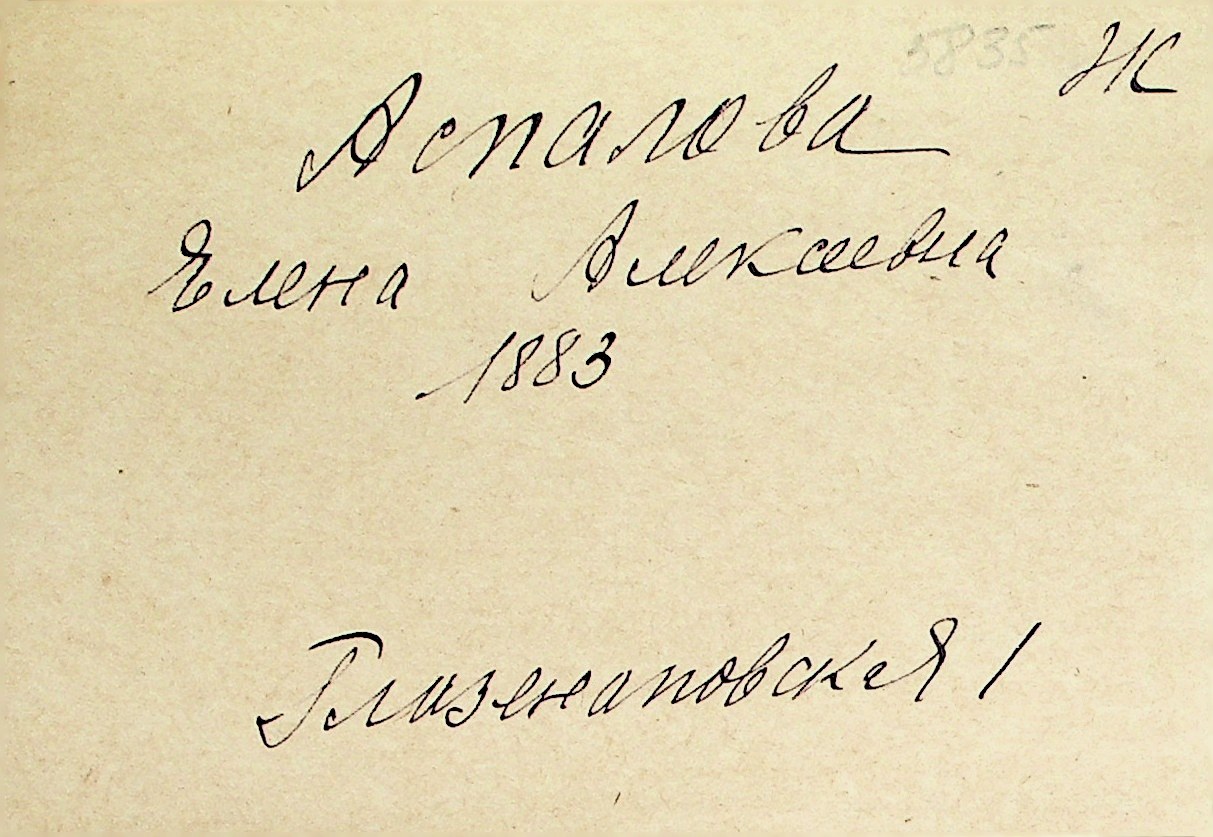 5835 Ж
Аспалова
Елена Алексеевна
1883
Глазенаповская 1